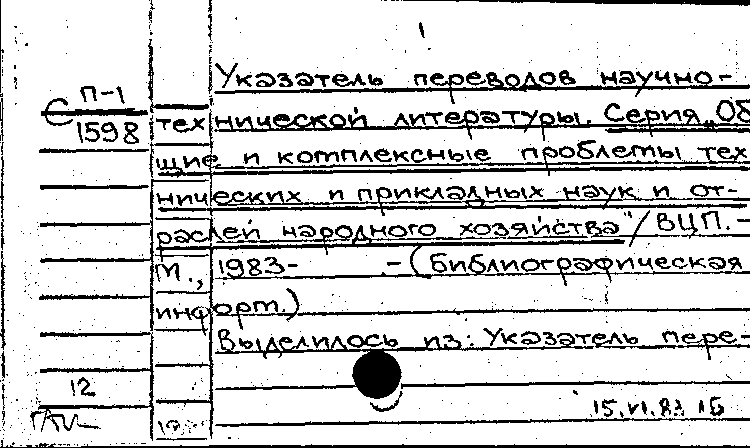 Указатель переводов научно-
С П-1
1598
технической литературы. Серия „Об
щие и комплексные проблемы тех
нических и прикладных наук и от-
раслей народного хозяйства"/ВЦП.-
М., 1983- .-(Библиографическая
информ.)
Выделилось из: Указатель пере-
12
15.VI.83 15